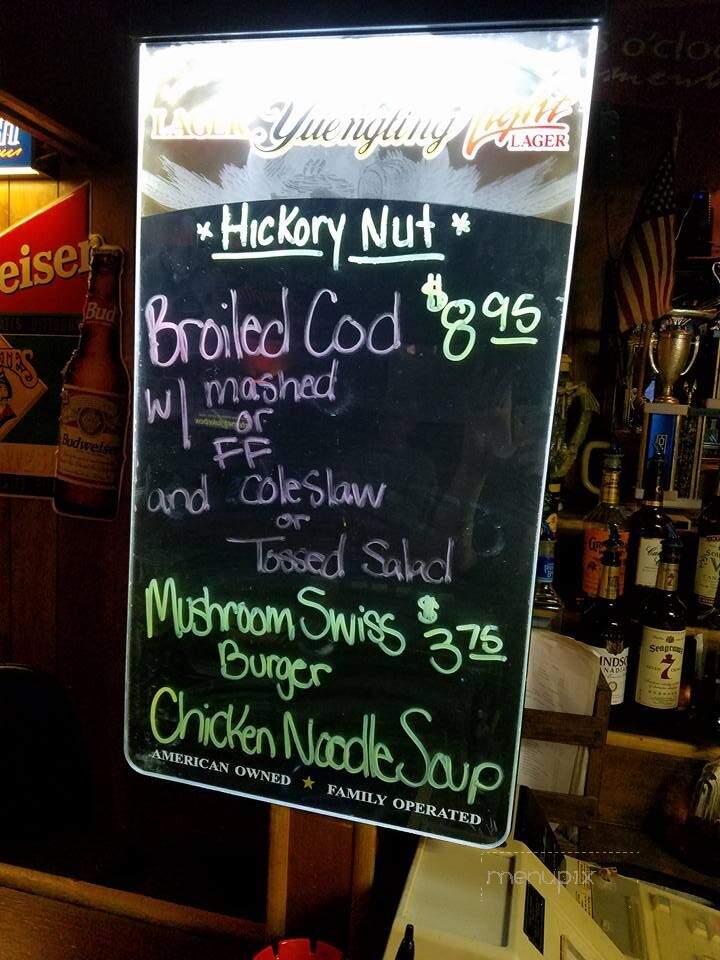 o'clo
LAGER Yuengling Light
LAGER
* Hickory Nut *
Broiled Cod $8.95
w/ mashed
or
FF
and coleslaw
or
Tossed Salad
Mushroom Swiss $3.75
Burger
Chicken Noodle Soup
AMERICAN OWNED ★ FAMILY OPERATED
eiser
Bud
Budweiser
Seagram's
7
menupix